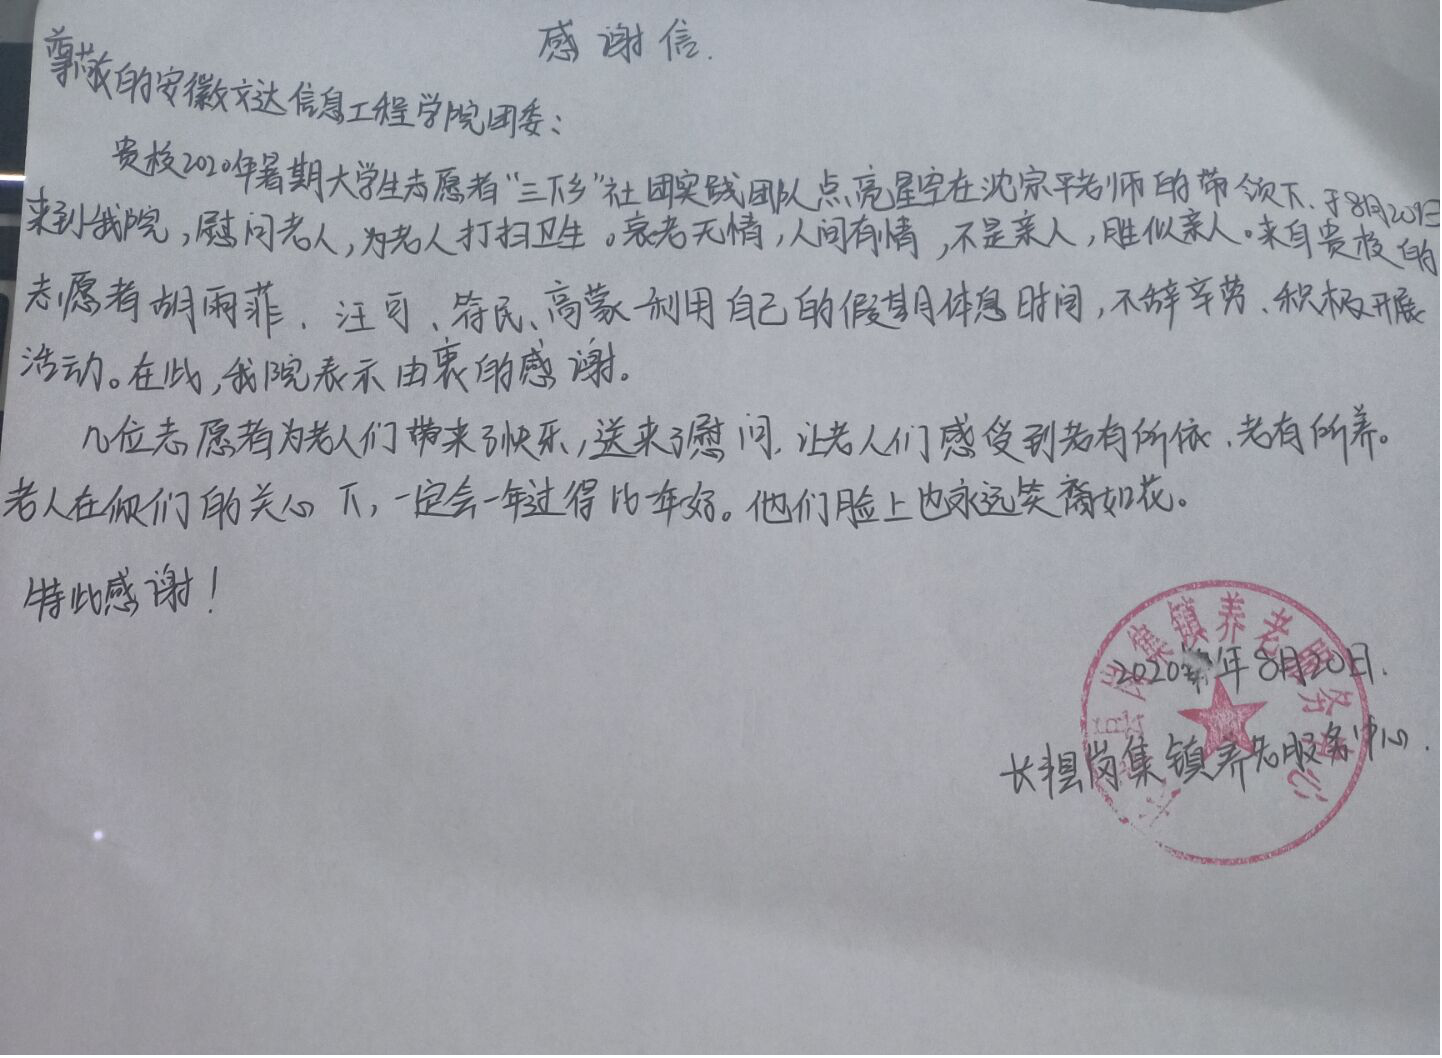 感谢信.
尊敬的安徽文达信息工程学院团委：
贵校2020年暑期大学生志愿者“三下乡”社团实践团队点亮星空在沈宗平老师的带领下、于8月20日
来到我院，慰问老人，为老人打扫卫生。衰老无情，人间有情，不是亲人，胜似亲人。来自贵校的
志愿者胡雨菲、汪可、符民、高蒙利用自己的假期休息时间，不辞辛劳、积极开展
活动。在此，我院表示由衷的感谢。
几位志愿者为老人们带来了快乐，送来了慰问，让老人们感受到老有所依、老有所养。
老人在他们的关心下，一定会一年过得比一年好。他们脸上也永远笑裔如花。
特此感谢！
2020年8月20日.
长丰县岗集镇养老服务中心.
长丰县岗集镇养老服务中心